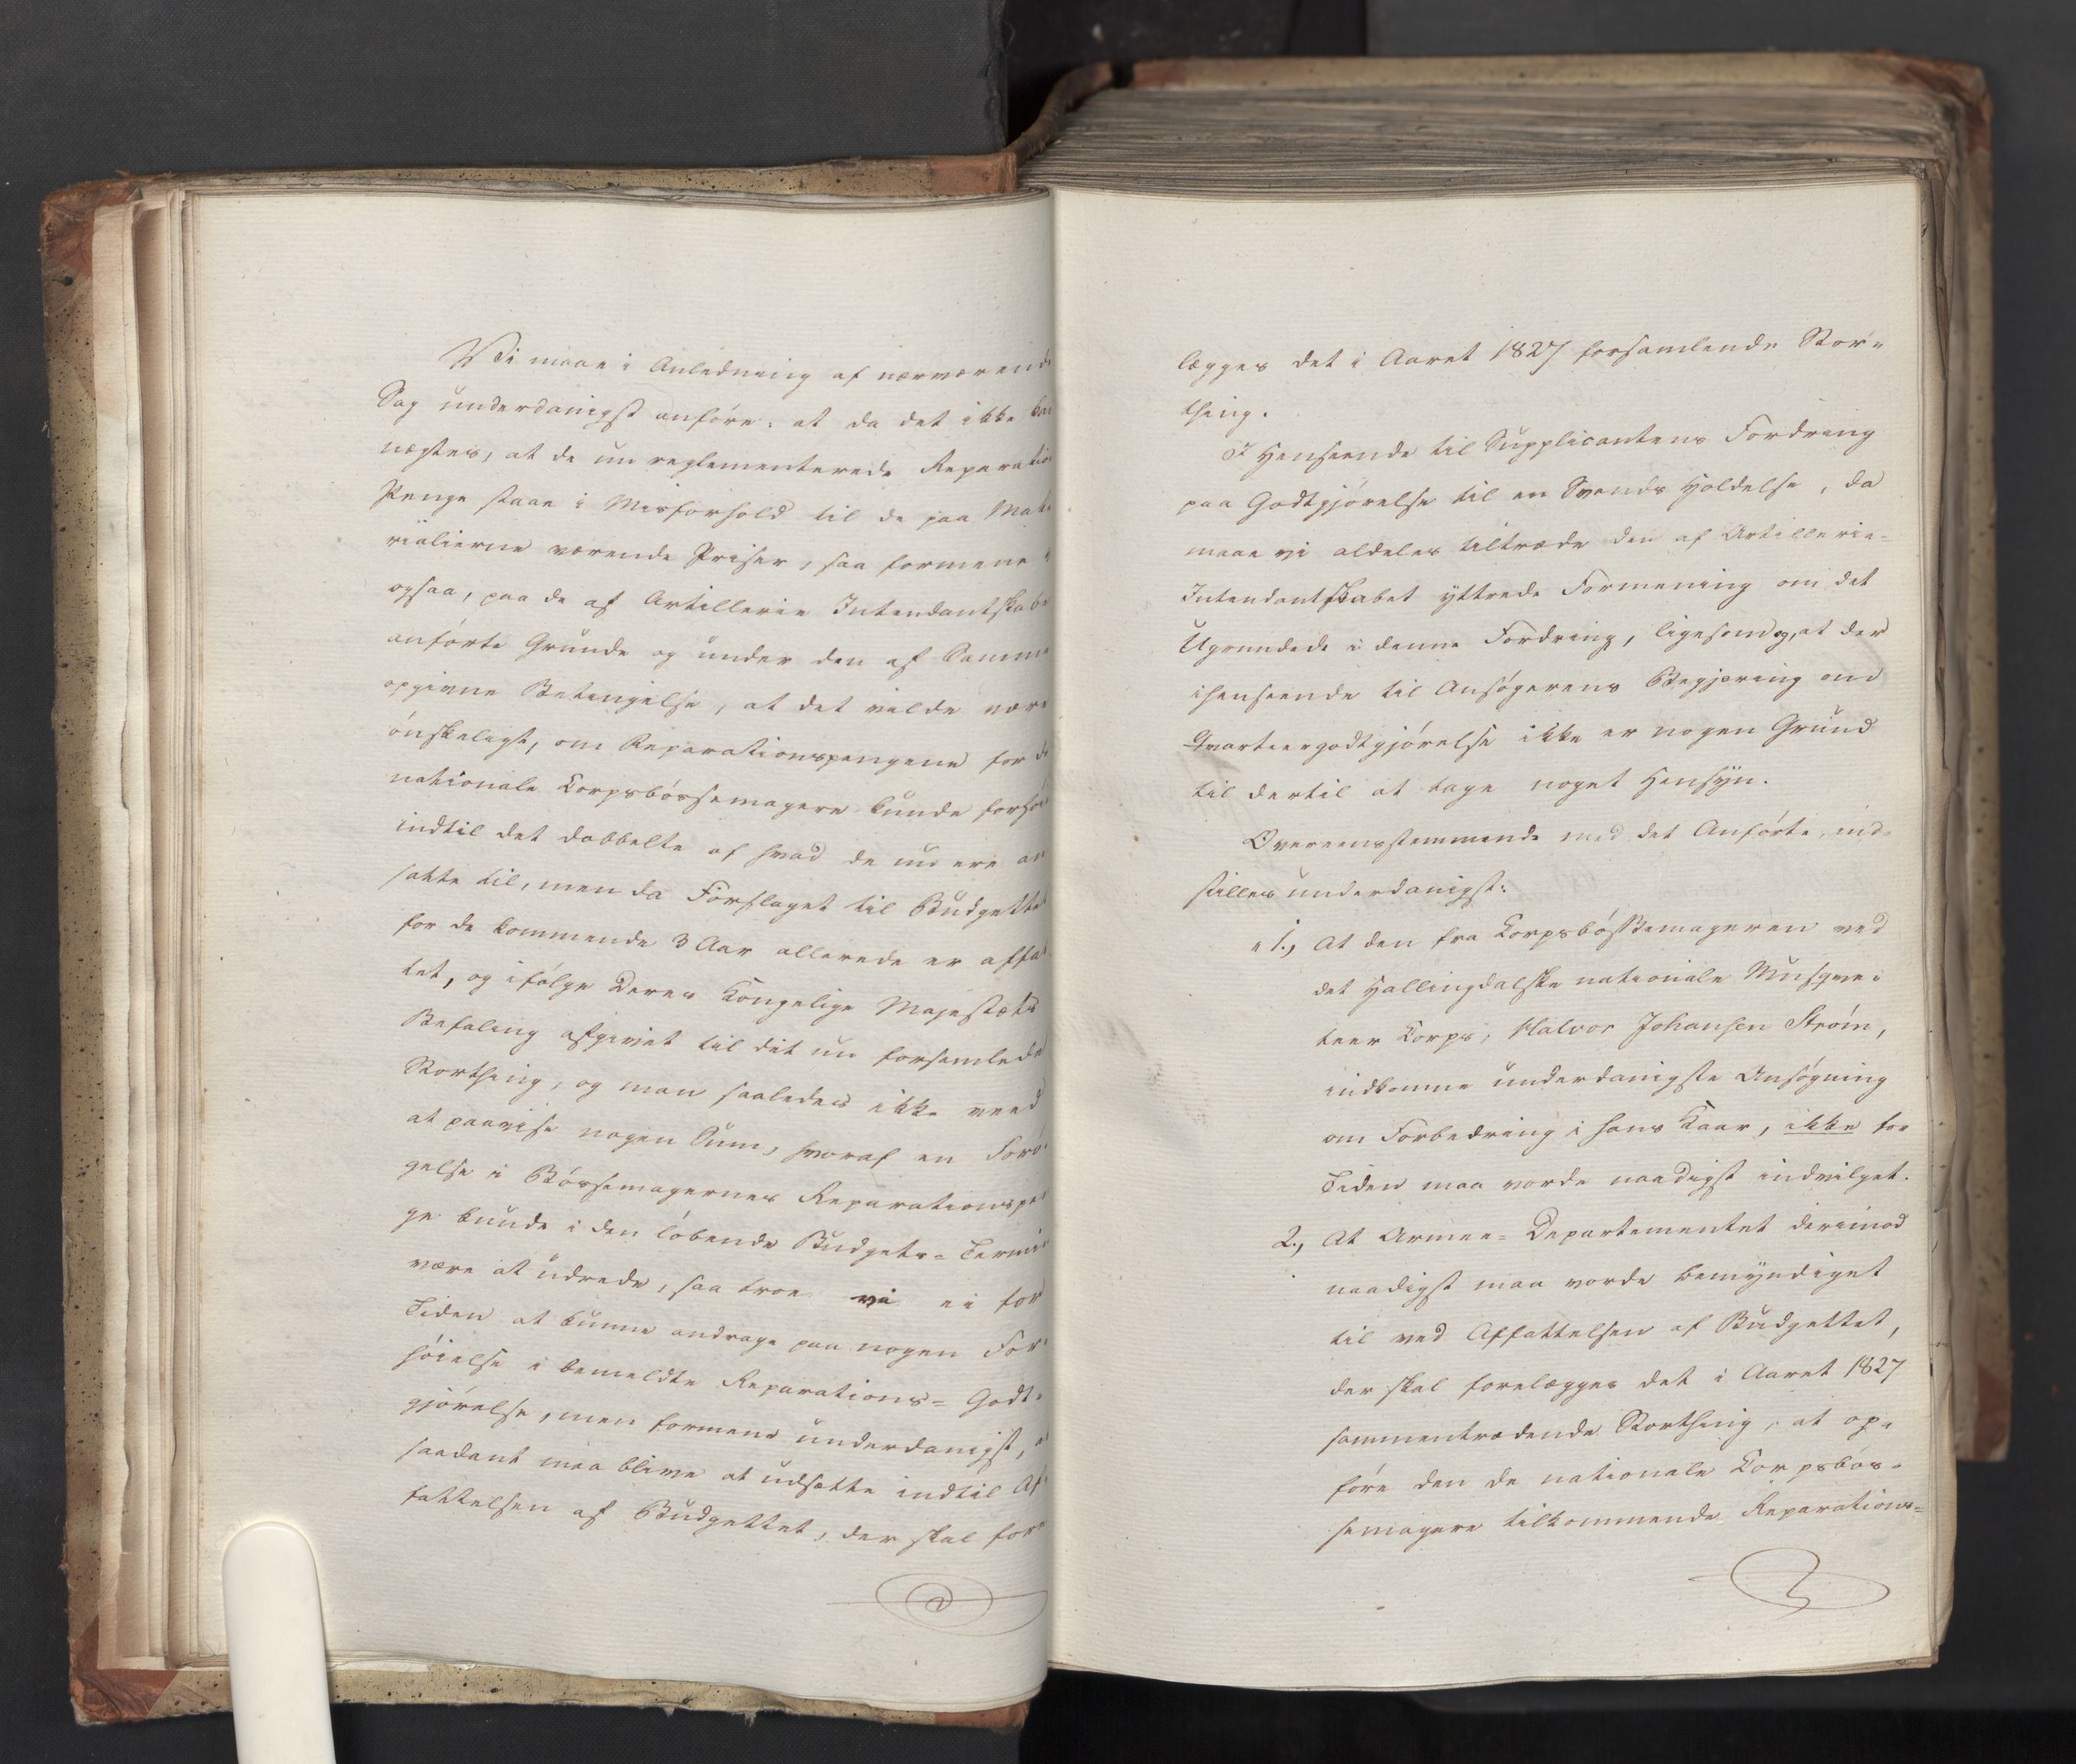 Vi maae i Anledning af nærværende
Sag underdanigst anføre: at da det ikke kan
nægtes, at de nu reglementerede Reparations
Penge staae i Misforhold til de paa Mate
rialierne værende Priser, saa formene vi
ogsaa, paa de af Artillerie Intendantskabet
anførte Grunde og under den af Samme
opgivne Betingelse, at det vilde være
ønskeligt, om Reparationspengene for de
nationale Corpsbøssemagere kunde forhøies
indtil det dobbelte af hvad de nu ere an
satte til, men da Forslaget til Budgettet
for de kommende 3 Aar allerede er affat
tet, og ifølge Deres Kongelige Majestæts
Befaling afgivet til dit nu forsamlede
Storthing, og man saaledes ikke veed
at paavise nogen Sum, hvoraf en Forø-
gelse i Bøssemagernes Reparationspen
ge kunde i den løbende Budgets-Termin
være at udrede, saa troe vi ei for
Tiden at kunne andrage paa nogen For-
høielse i bemeldte Reparations-Godt-
gjørelse, men formene underdanigst, at
saadant maa blive at udsætte indtil Af-
fattelsen af Budgettet, der skal fore
lægges det i Aaret 1827 forsamlende Stor-
thing.
I Henseende til Supplicantens Fordring
paa Godtgjørelse til en Svends Holdelse, da
maae vi aldeles tiltræde den af Artillerie-
Intendantskabet yttrede Formening om det
Ugrundede i denne Fordring, ligesom og, at der
ihenseende til Ansøgerens Begjæring om
Qvarteergodtgjørelse ikke er nogen Grund
til dertil at tage noget Hensyn.
Overeensstemmende med det Anførte, ind-
stilles underdanigst:
"1., At den fra Corpsbøssemageren ved
det Hallingdalske nationale Musque-
teer Corps, Halvor Johansen Strøm,
indkomne underdanigste Ansøgning
om Forbedring i hans Kaar, ikke for
Tiden maa vorde naadigst indvilget.
2., At Armee-Departementet derimod
naadigst maa vorde bemyndiget
til ved Affattelsen af Budgettet,
der skal forelægges det i Aaret 1827
sammentrædende Storthing, at op-
føre den de nationale Corpsbøs-
semagere tilkommende Reparations-